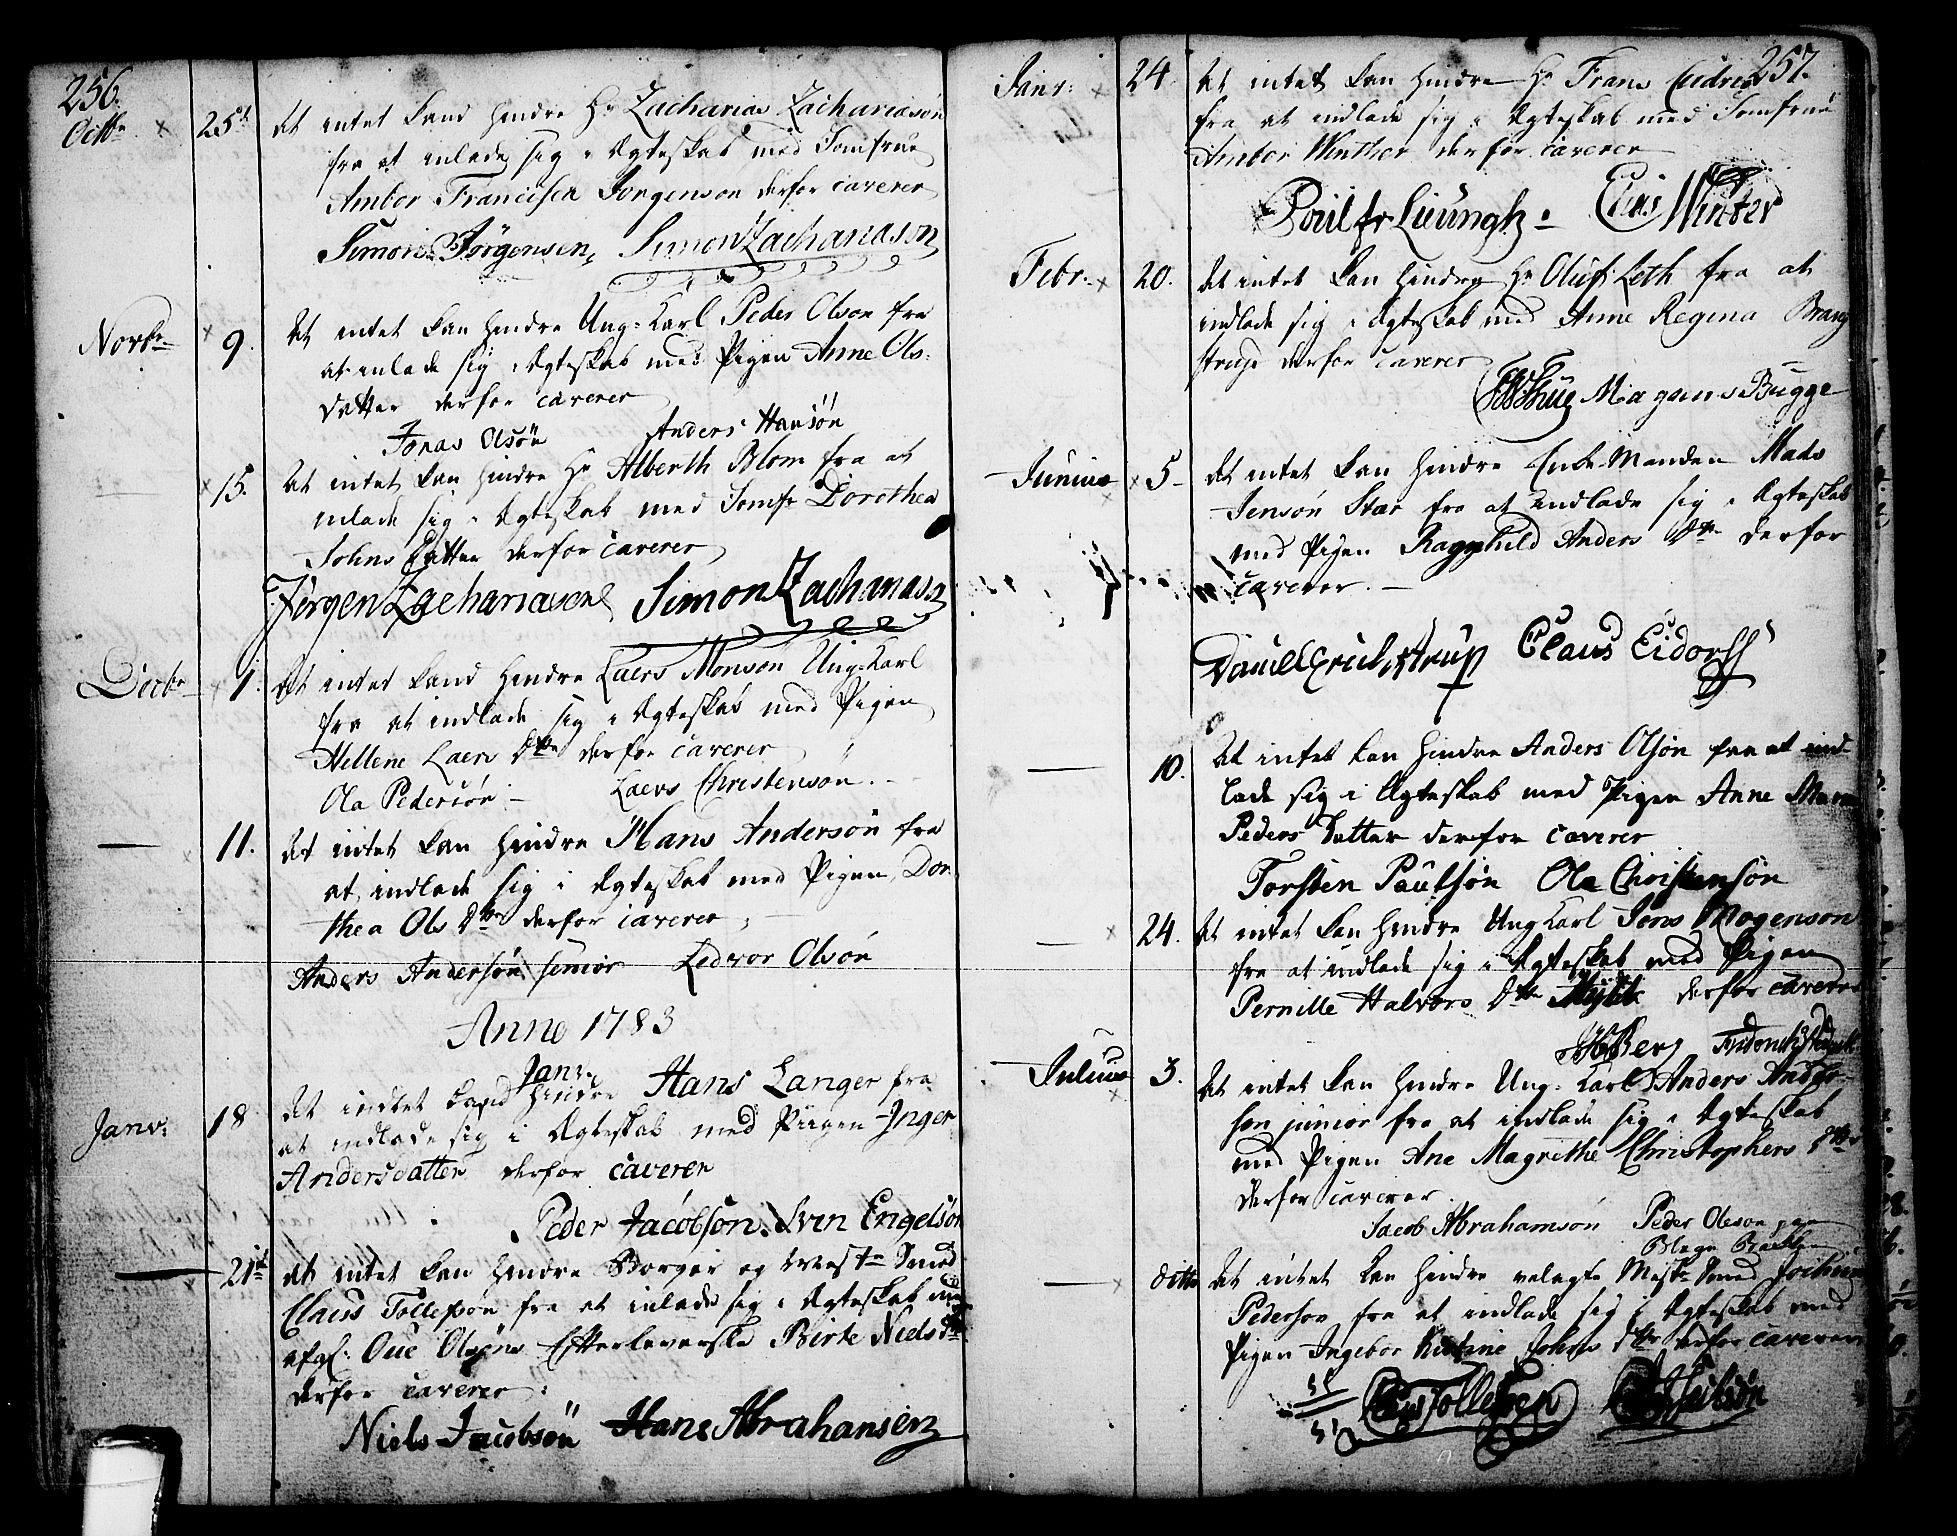 256.
Octbr 25de det intet kand hindre Hr Zacharias Zachariasøn
fra at inlade sig i Ægteskab med Jomfrue
Ambor Francisca Jørgenson derfor caverer
Simon Jørgensen, Simon Zachariasøn
Novbr 9. det intet kan hindre Ung-Karl Peder Olson fra
at inlade sig i Ægteskab med Pigen Anne Ols-
datter derfor caverer
Jonas Olsøn Anders Hansøn
15. At intet kan hindre Hr Alberth Blom fra at
inlade sig i Ægteskab med Jomfr Dorothea
Johns Datter derfor caverer
Jørgen Zachariasøn Simon Zachariasøn
Decbr 1. det intet kand hindre Laers Monson Ung-Karl
fra at indlade sig i Ægteskab med Pigen
Hellene Laers Dtr derfor caverer
Ola Pedersøn - Laers Christensøn.
11. det intet kan hindre Hans Andersøn fra
at indlade sig i Ægteskab med Pigen Dor-
thea Ols Dtr derfor caverer
Anders Andersøn senior Ledvor Olsøn
Anno 1783
Janv:
Janv: 18 det indtet kand hindre Hans Langer fra
at indlade sig i Ægteskab med Piigen Inger
Andersdatter derfor caverer
Peder Jacobson. Sven Engelsøn
21de det intet kan hindre Borger og Mestr Smed
Claus Tollefsøn fra at inlade sig i Ægteskab med
afg: Ove Olsøns Efterleverske Birte Niels Dtr
derfor caverer
Niels Jacobsøn Hans Abrahansen
257.
Janv: 24. At intet kan hindre Hr Frans
fra at indlade sig i Ægteskab med Jomfrue
Ambor Winther derfor caverer
Poul fr Lieungh. Winter
Febr. 20. det intet kan hindre Hr Oluf Leth fra at
indlade sig i Ægteskab med Anne Regina Brang
strup derfor caverer
Magnus Bugge
Junius 5 - det intet kan hindre Enke-Manden Mads
Jensøn Stær fra at indlade sig i Ægteskab
med Pigen Ragnhild Anders Dtr derfor
caverer. -
Daniel Erichstrup Claus Eidorff
10. det intet kan hindre Anders Olsøn fra at ind-
lade sig i Ægteskab med Pigen Anne Maria
Peders datter derfor caverer
Torsten Paulsøn Ola Christensøn
24. At intet kan hindre Ung Karl Jens Mogenson
fra at indlade sig i Ægteskab med Pigen
Pernille Halvors Dtr derfor caverer
Berg
Julius 3. det intet kan hindre Ung-Karl Anders Ander-
søn junior fra at indlade sig i Ægteskab
med Pigen Ane Magrethe Christophers Dtr
derfor caverer.
Jacob Abrahamsøn Peder Oleson

ditto det intet kan hindre velagte Mestr Smed Jochum
Pedersøn fra at indlade sig i Ægteskab med
Pigen Ingebor Kirstine Johns Dtr derfor caverer
Claus Tollefsen